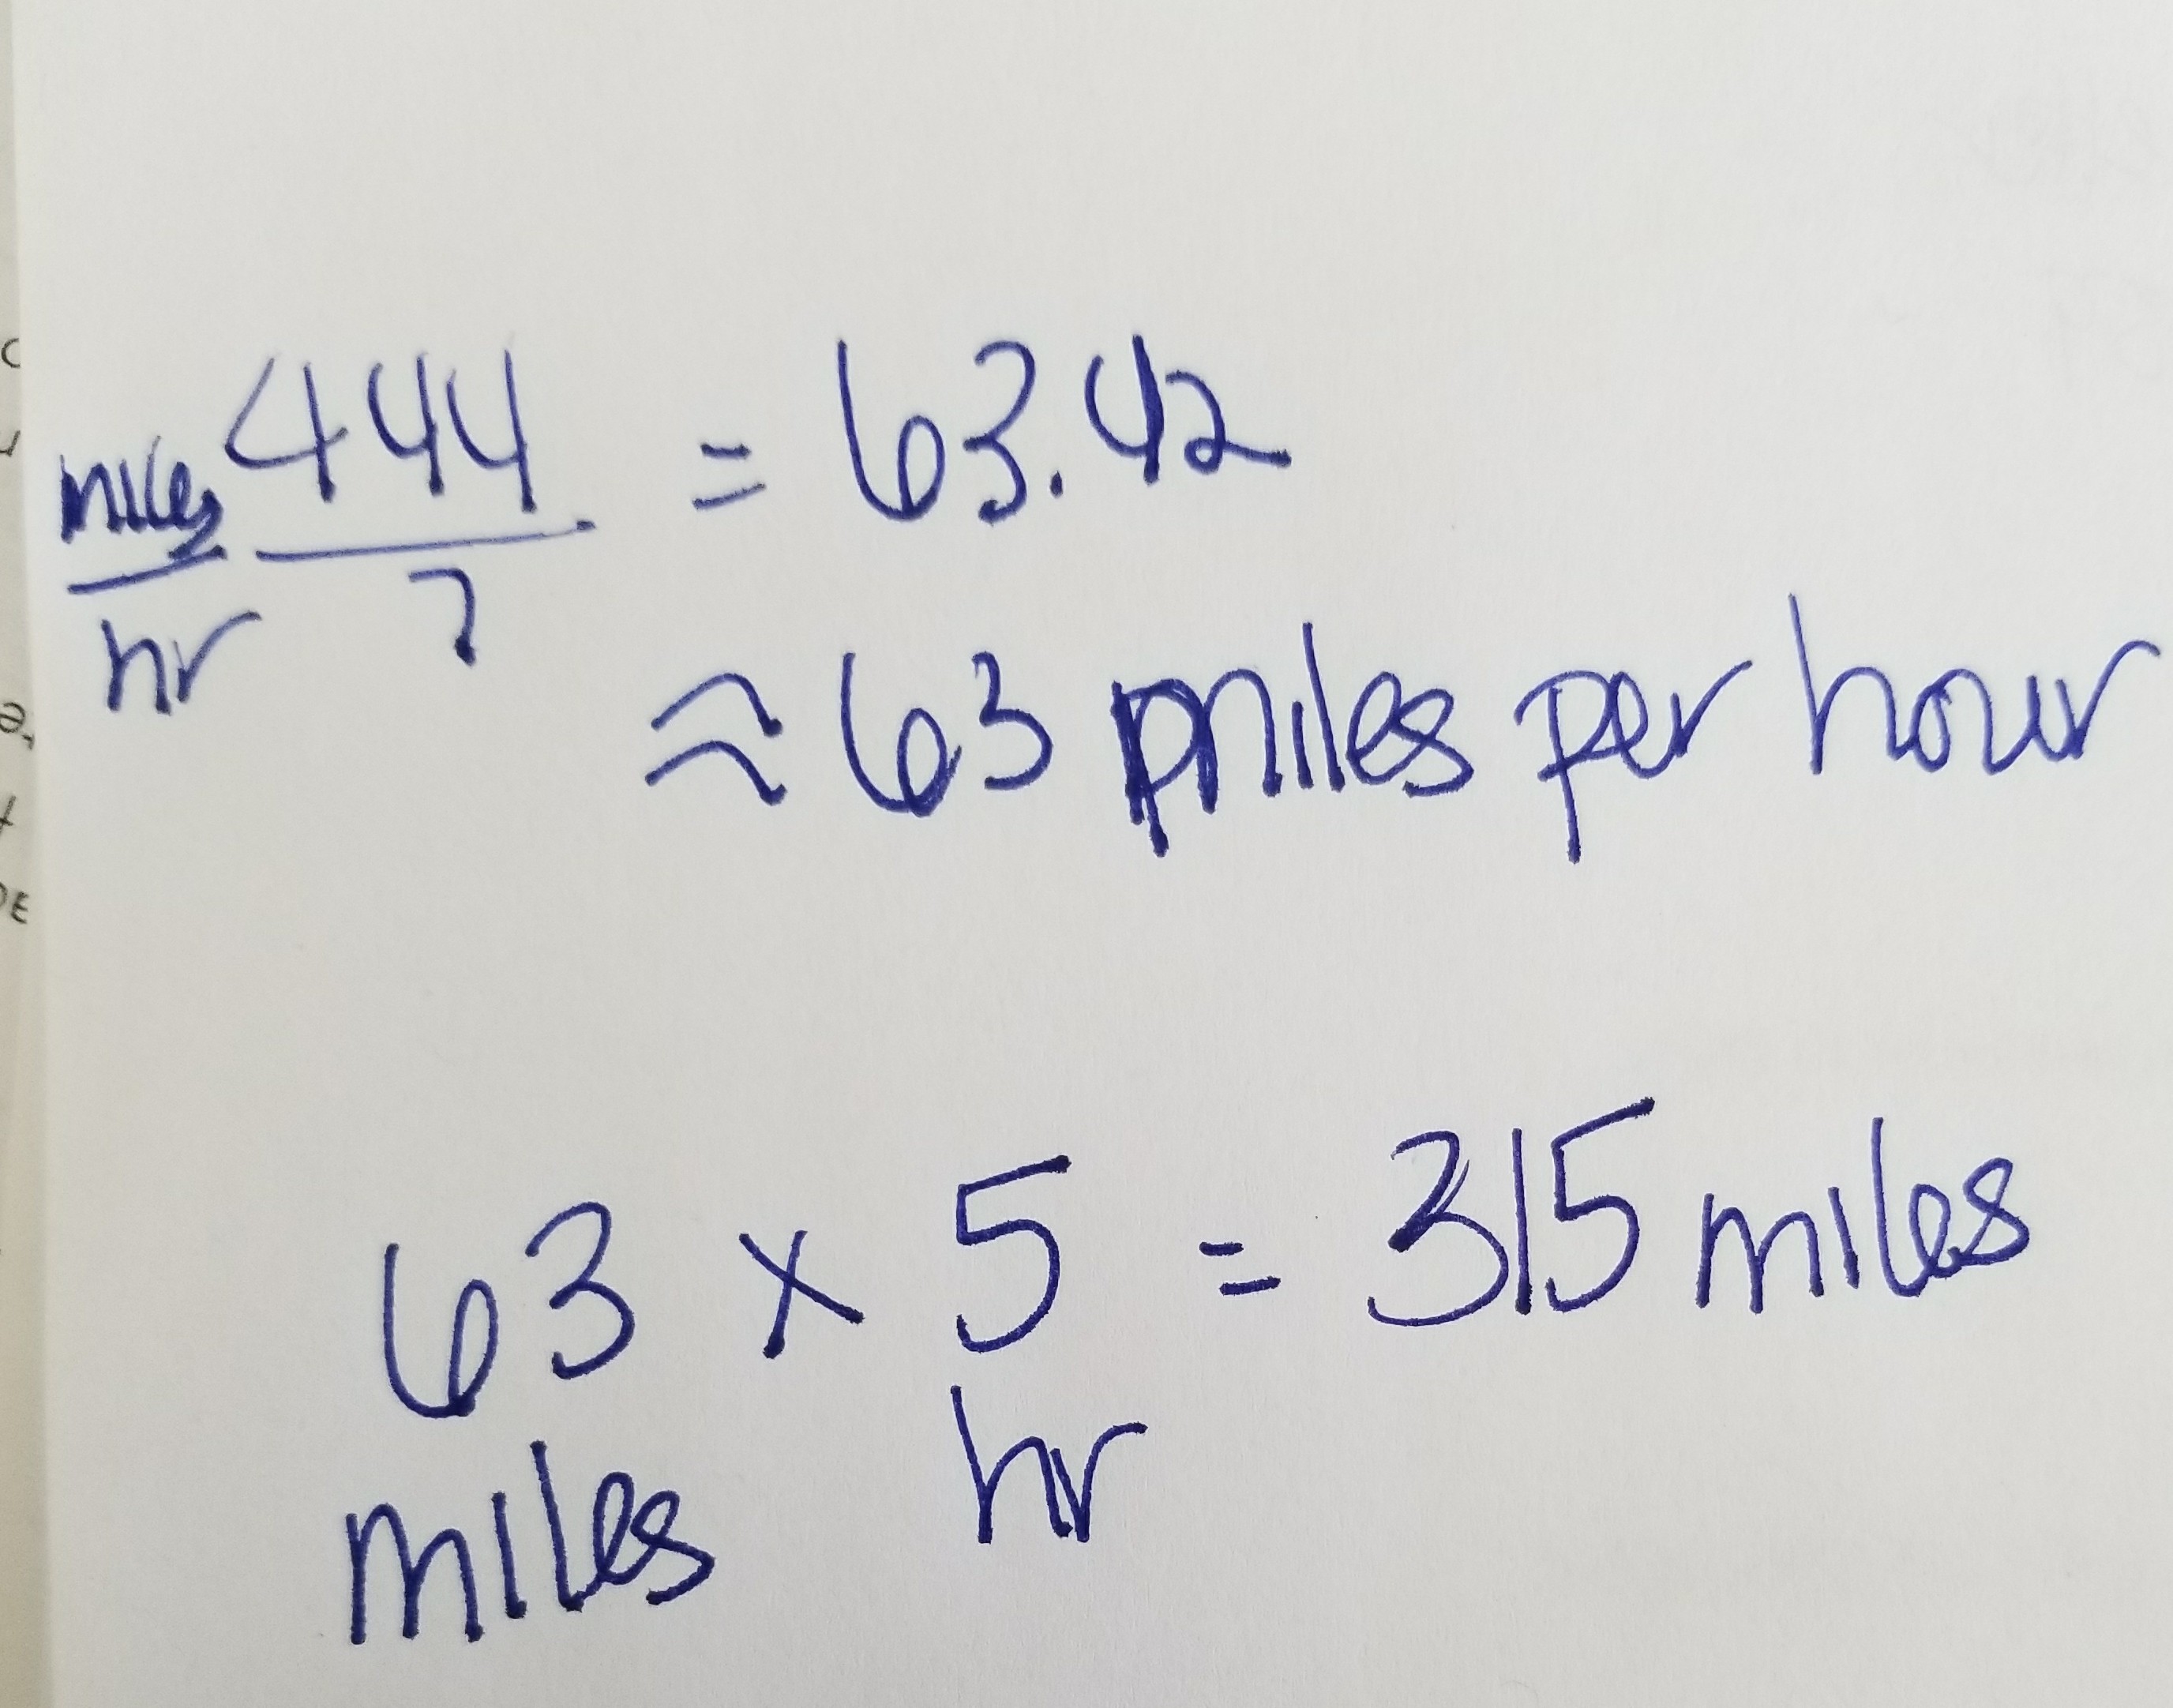 miles 444 = 63.42
hr 7
≈ 63 miles per hour
63 x 5 = 315 miles
miles hr